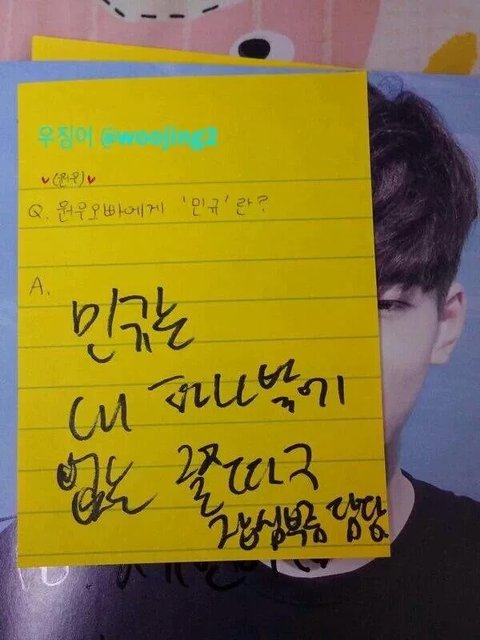 우징어 @woojing2
♥(원우)♥
Q. 원우오빠에게 '민규'란?
A.
민규는
내 밖에
없는 꼴따구
심부름 담당